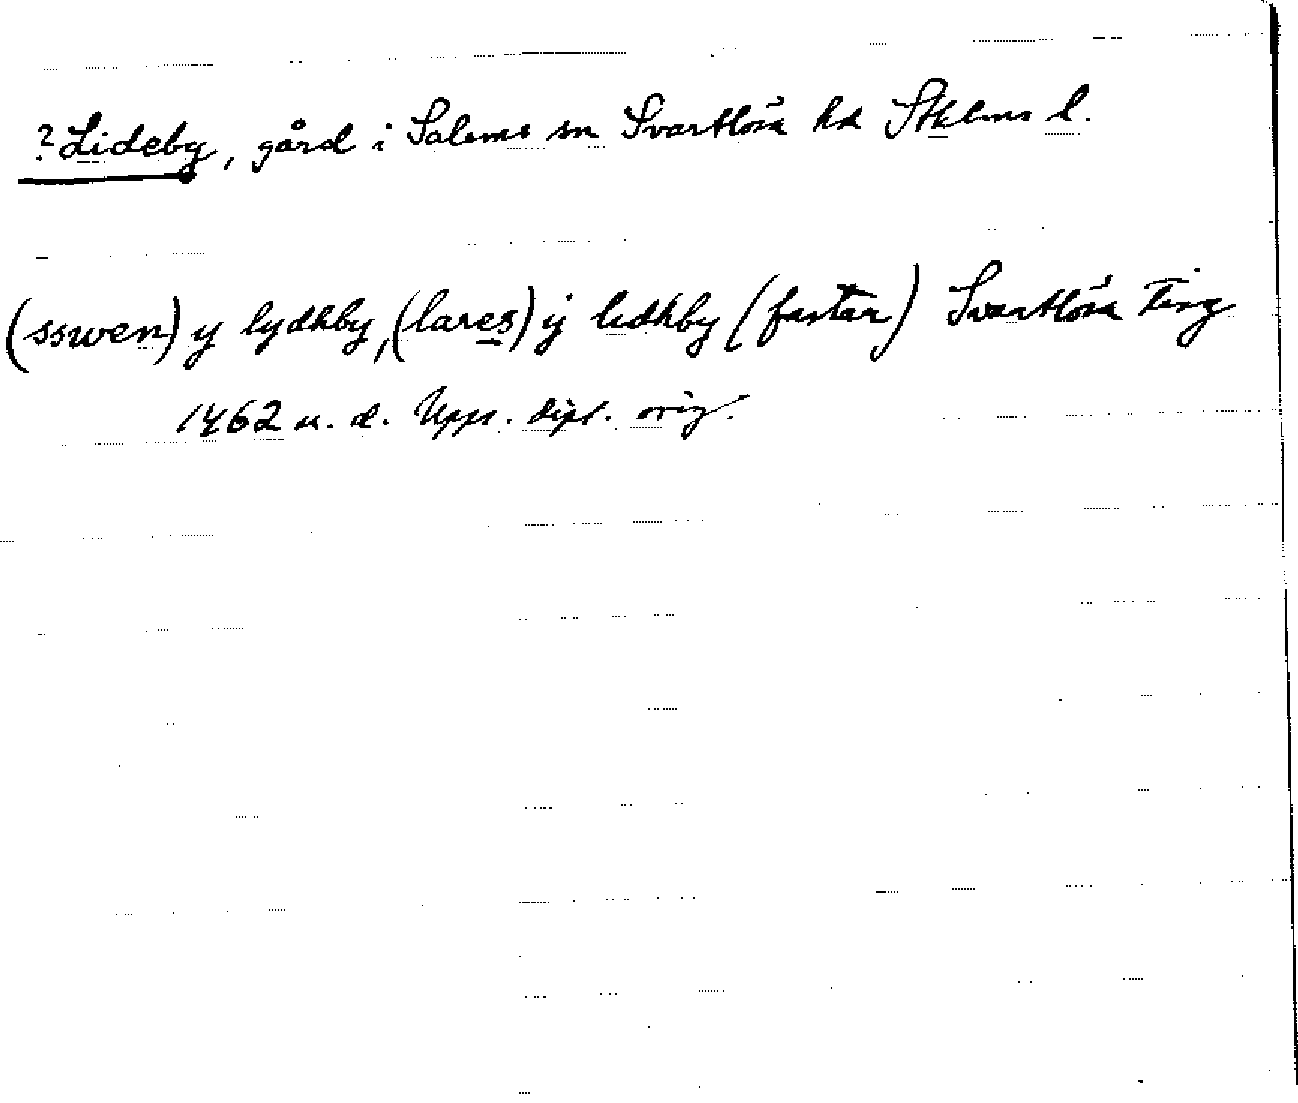 ? Lideby, gård i Salems sn Svartlösa hd Sthlms l.
(sswen) y lydhby, (lares) ÿ lidhby (fastar) Svartlösa Ting
1462 u. d. Upps. dipl. orig.